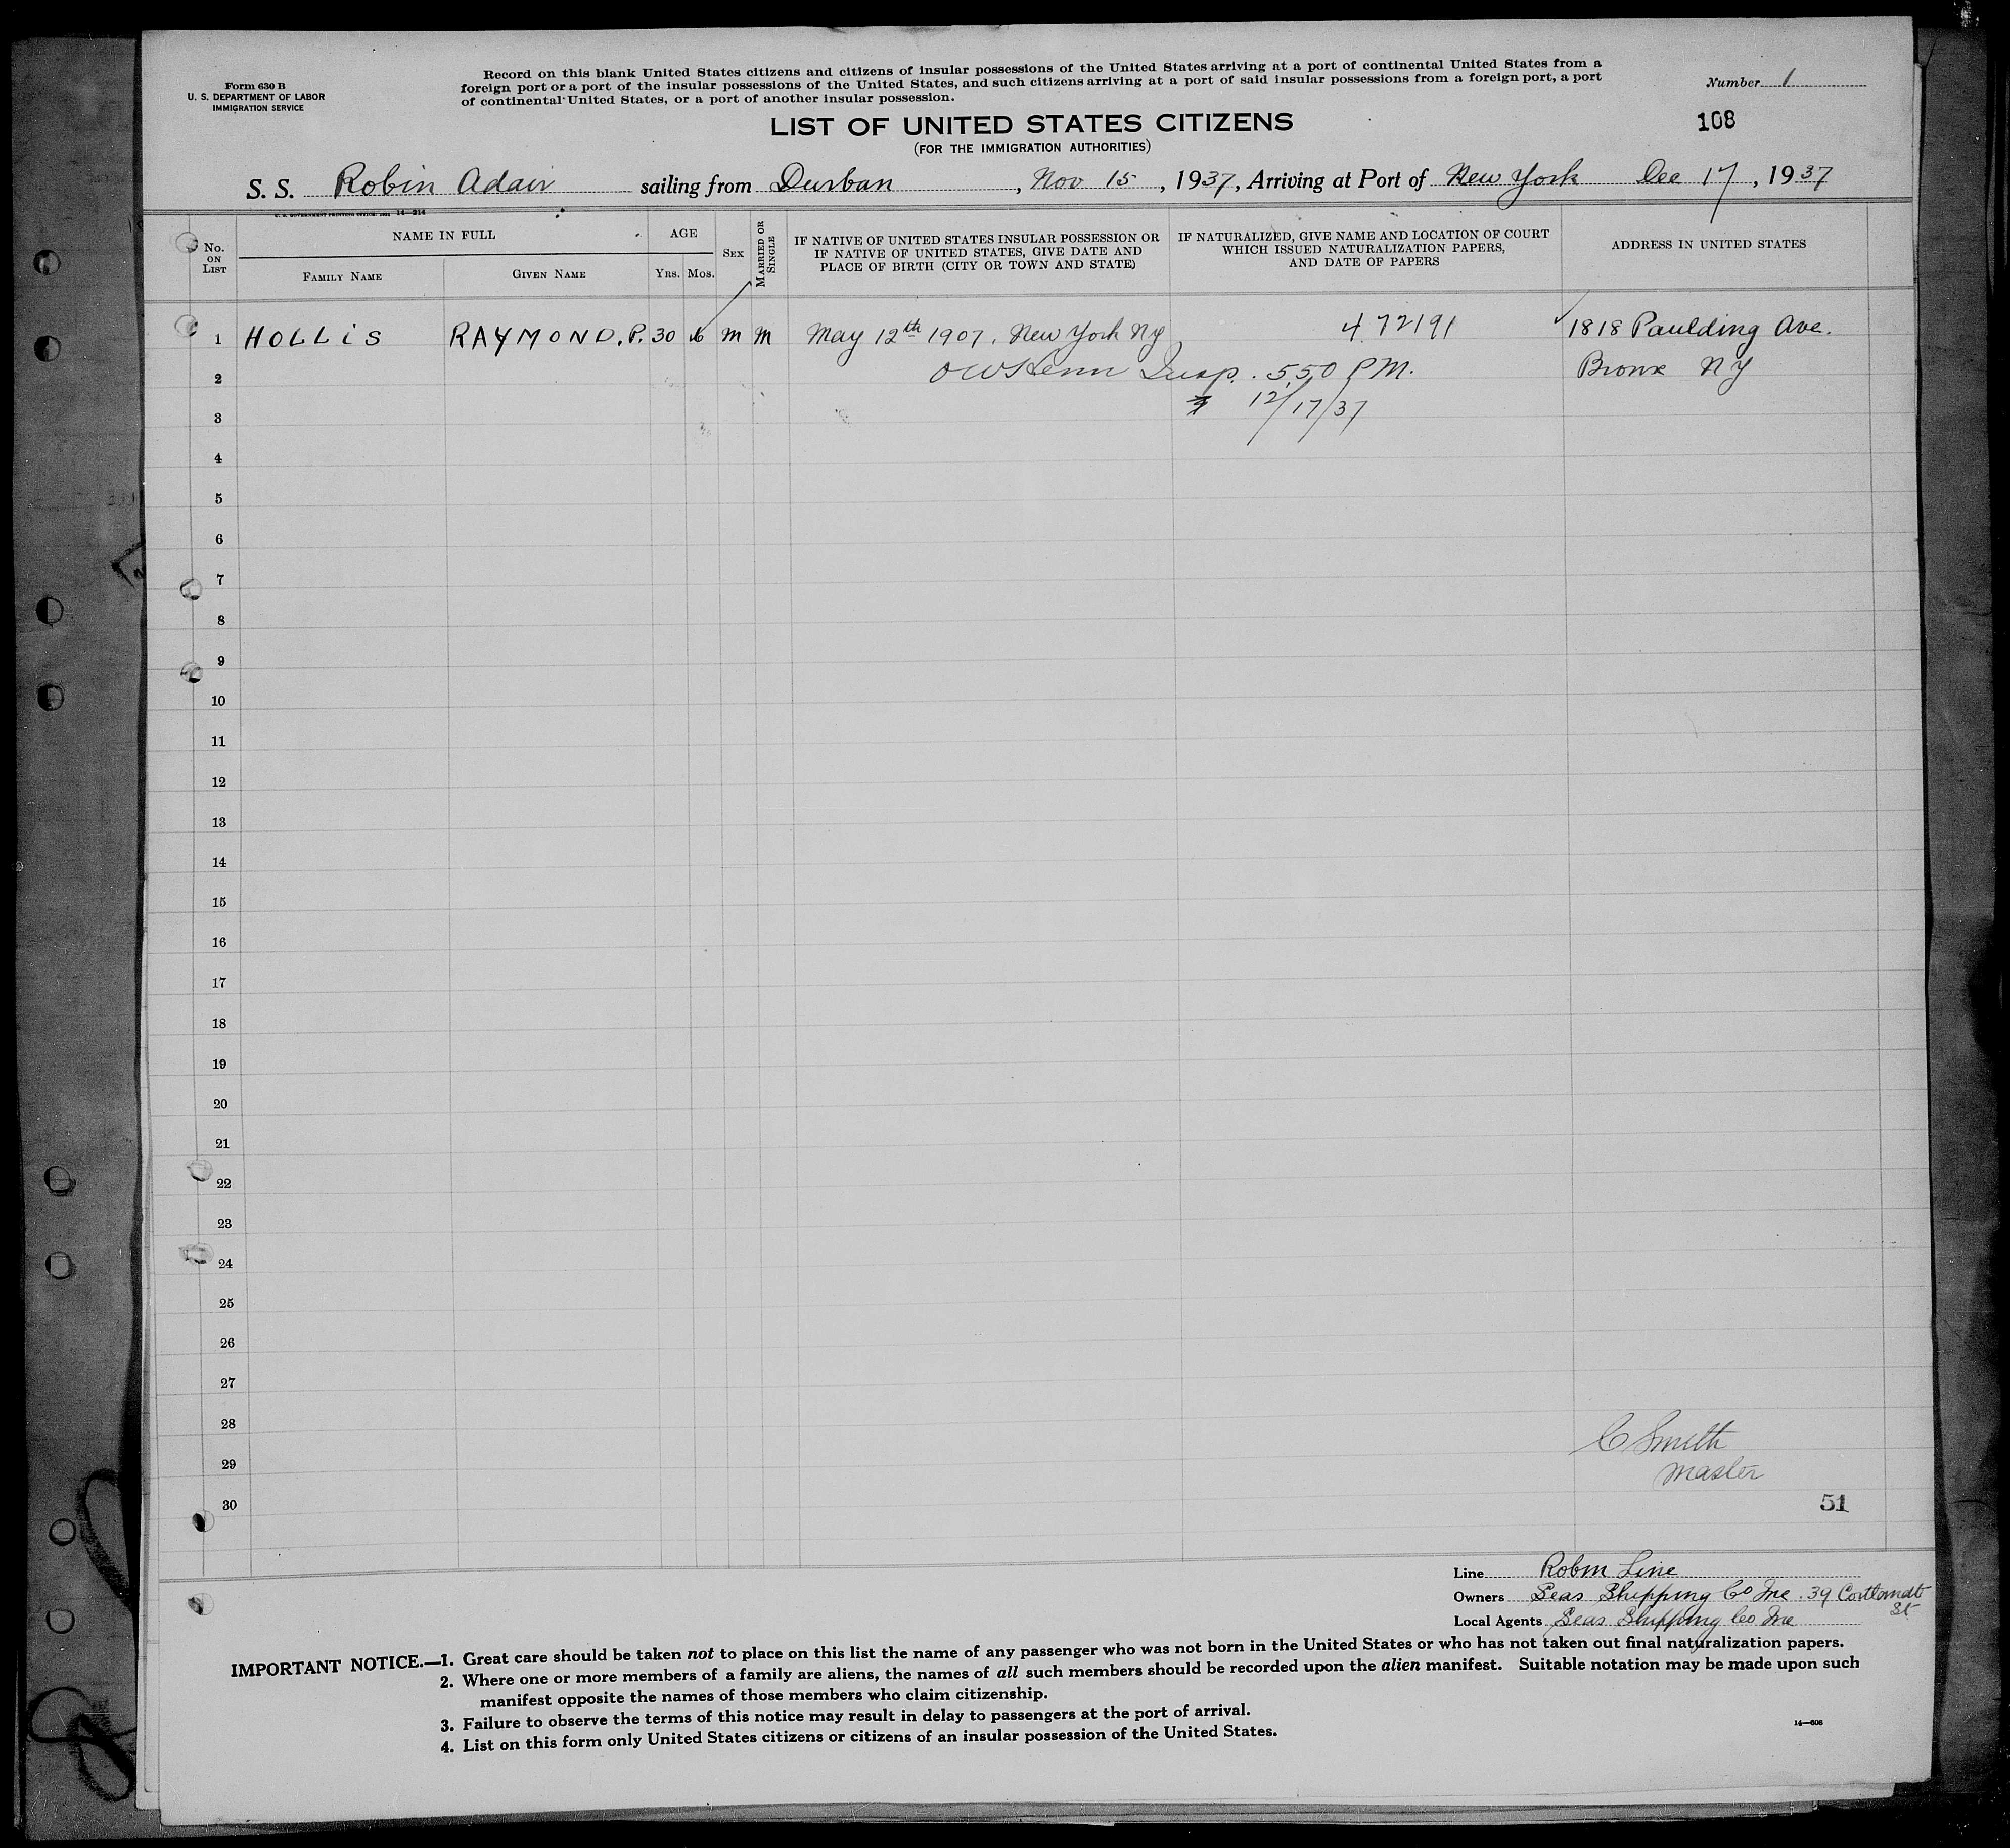 Form 630 B
U. S. DEPARTMENT OF LABOR
IMMIGRATION SERVICE
Record on this blank United States citizens and citizens of insular possessions of the United States arriving at a port of continental United States from a
foreign port or a port of the insular possessions of the United States, and such citizens arriving at a port of said insular possessions from a foreign port, a port
of continental United States, or a port of another insular possession.
Number 1
108
LIST OF UNITED STATES CITIZENS
(FOR THE IMMIGRATION AUTHORITIES)
S. S. Robin Adair sailing from Durban, Nov 15, 1937, Arriving at Port of New York Dec 17, 1937
U. S. GOVERNMENT PRINTING OFFICE: 14—214
No. ON LIST
NAME IN FULL
FAMILY NAME
GIVEN NAME
AGE
YRS. MOS.
SEX
MARRIED OR SINGLE
IF NATIVE OF UNITED STATES INSULAR POSSESSION OR
IF NATIVE OF UNITED STATES, GIVE DATE AND
PLACE OF BIRTH (CITY OR TOWN AND STATE)
IF NATURALIZED, GIVE NAME AND LOCATION OF COURT
WHICH ISSUED NATURALIZATION PAPERS,
AND DATE OF PAPERS
ADDRESS IN UNITED STATES
1 HOLLIS RAYMOND. P. 30 6 m m May 12th 1907, New York NY 472191 1818 Paulding Ave.
2 Insp. 5,50 P.M. Bronx NY
3 12/17/37
4
5
6
7
8
9
10
11
12
13
14
15
16
17
18
19
20
21
22
23
24
25
26
27
28
29
30
C Smith
Master
51
Line Robin Line
Owners Seas Shipping Co Inc. 39 Cortlandt St
Local Agents Seas Shipping Co Inc
IMPORTANT NOTICE.—1. Great care should be taken not to place on this list the name of any passenger who was not born in the United States or who has not taken out final naturalization papers.
2. Where one or more members of a family are aliens, the names of all such members should be recorded upon the alien manifest. Suitable notation may be made upon such
manifest opposite the names of those members who claim citizenship.
3. Failure to observe the terms of this notice may result in delay to passengers at the port of arrival.
4. List on this form only United States citizens or citizens of an insular possession of the United States.
14—608